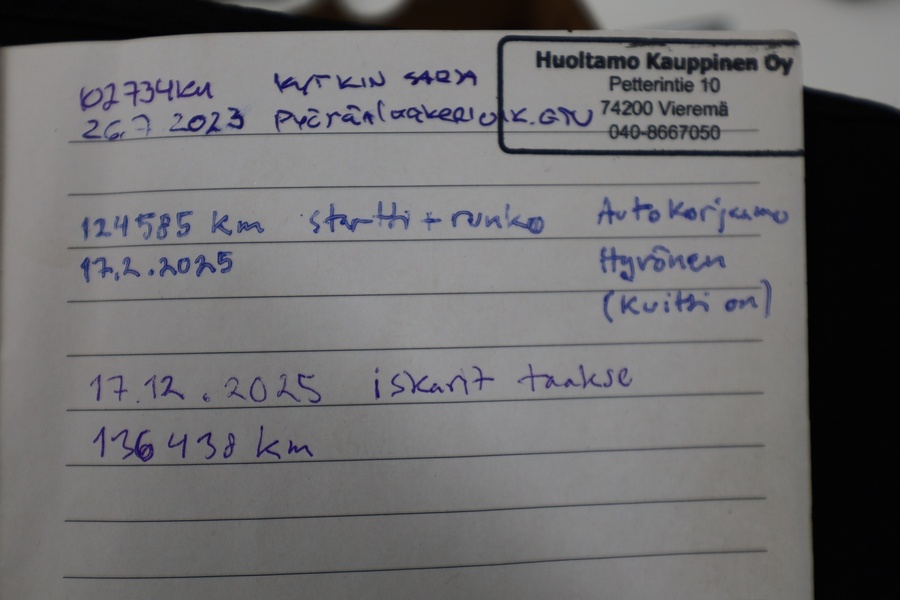 102734KM KYTKIN SARJA
26.7 2023 PYÖRÄNLAAKERI OIK. ETU
Huoltamo Kauppinen Oy
Petterintie 10
74200 Vieremä
040-8667050
124585 km startti + runko Autokorjaamo
17.2.2025 Hyvönen
(kuitti on)
17.12.2025 iskarit taakse
136438 km